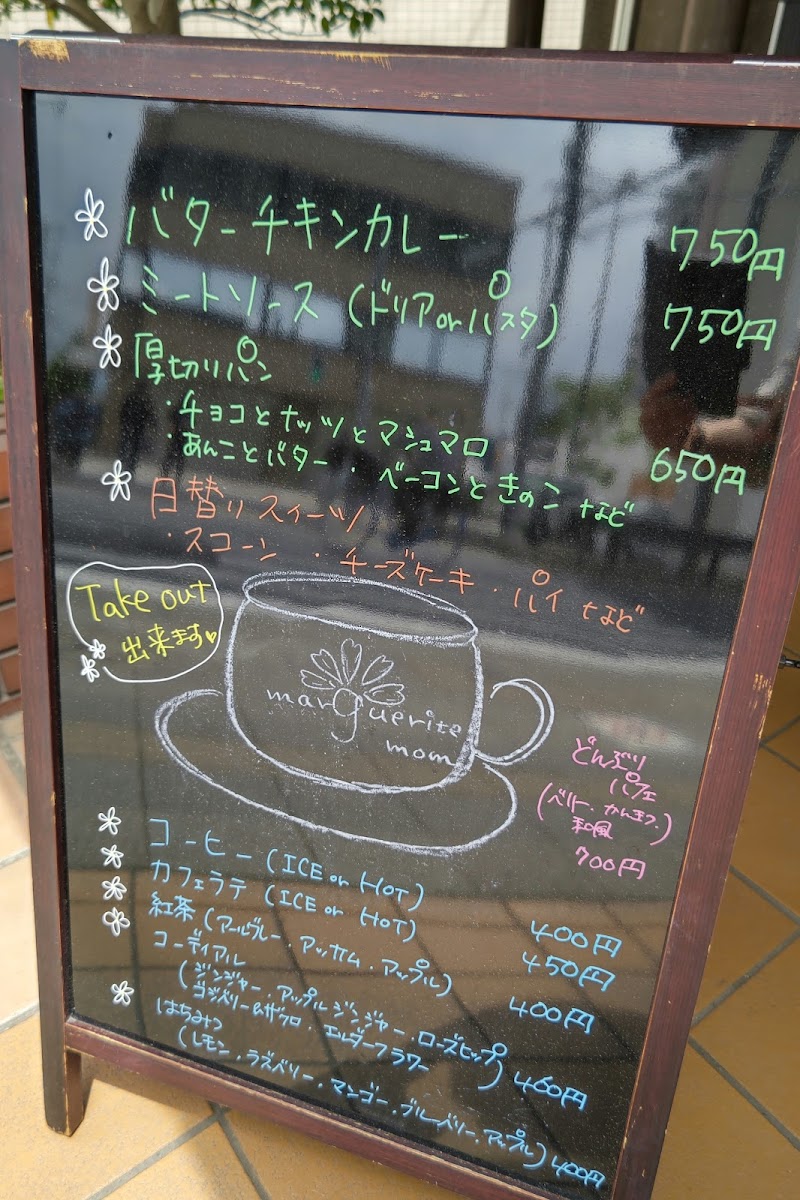 バターチキンカレー 750円
ミートソース (ドリアorパスタ) 750円
厚切りパン
・チョコとナッツとマシュマロ
・あんことバター ・ベーコンときのこ など 650円
日替りスィーツ
・スコーン ・チーズケーキ・パイ など
Take out
出来ます♥
marguerite
mom
どんぶり
パフェ
(ベリー・かんきつ・
和風)
700円
コーヒー (ICE or HOT) 400円
カフェラテ (ICE or HOT) 450円
紅茶 (アールグレー・アッサム・アップル) 400円
コーディアル
(ジンジャー・アップルジンジャー・ローズヒップ
ゴジベリー&ザクロ・エルダーフラワー) 400円
はちみつ
(レモン・ラズベリー・マンゴー・ブルーベリー・アップル) 400円